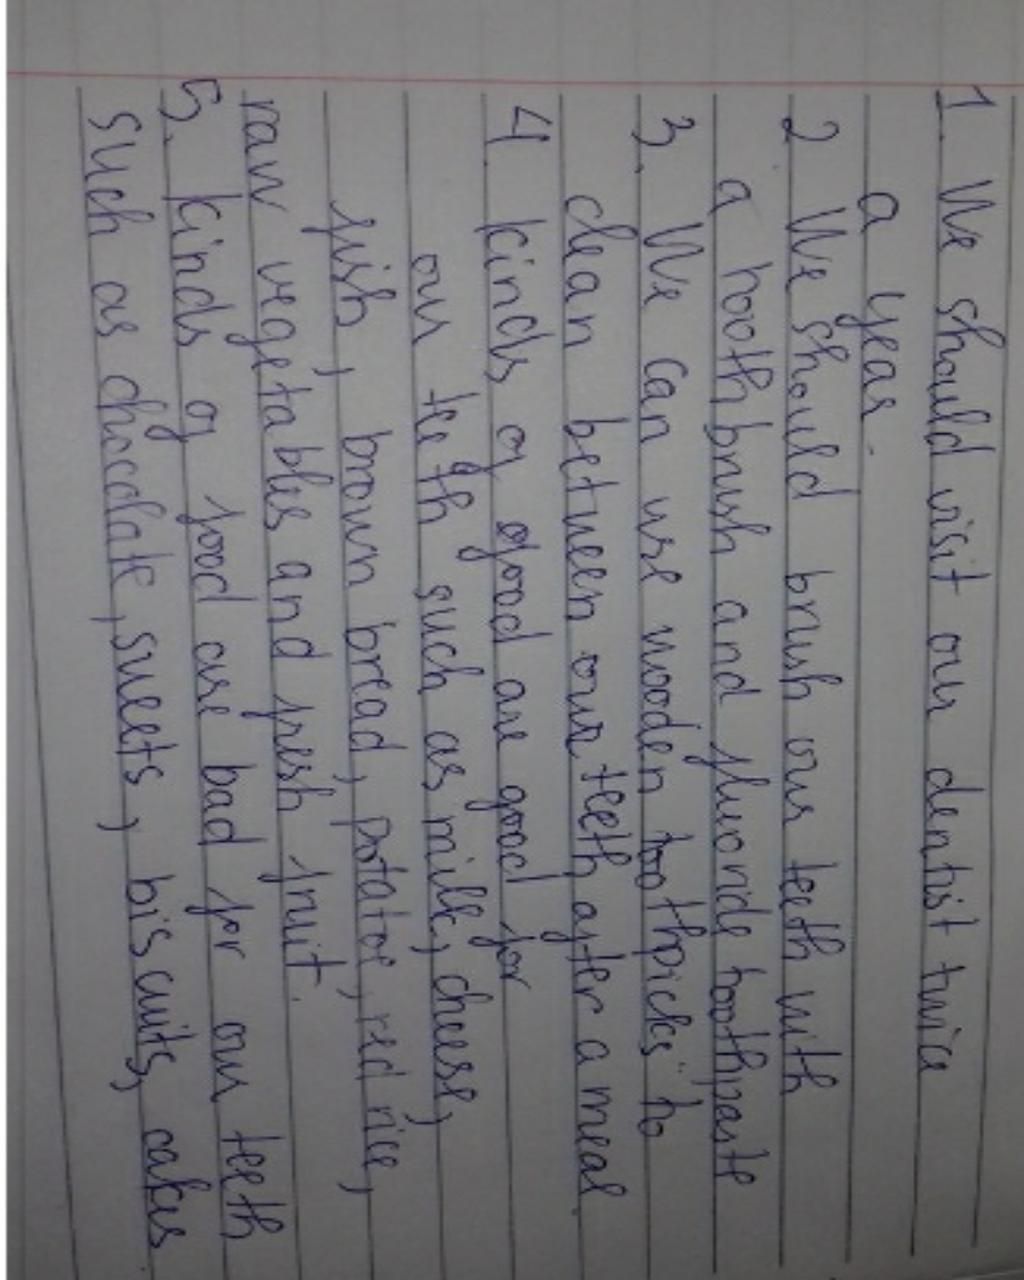 1. We should visit our dentist twice
a year.
2 We should brush our teeth with
a toothbrush and fluoride toothpaste
3. We can use wooden toothpicks to
clean between our teeth after a meal.
4 kinds of good are good for
our teeth such as milk, cheese,
fish, brown bread, potatoe, red rice,
raw vegetables and fresh fruit.
5. kinds of food are bad for our teeth
such as chocolate, sweets, biscuits, cakes